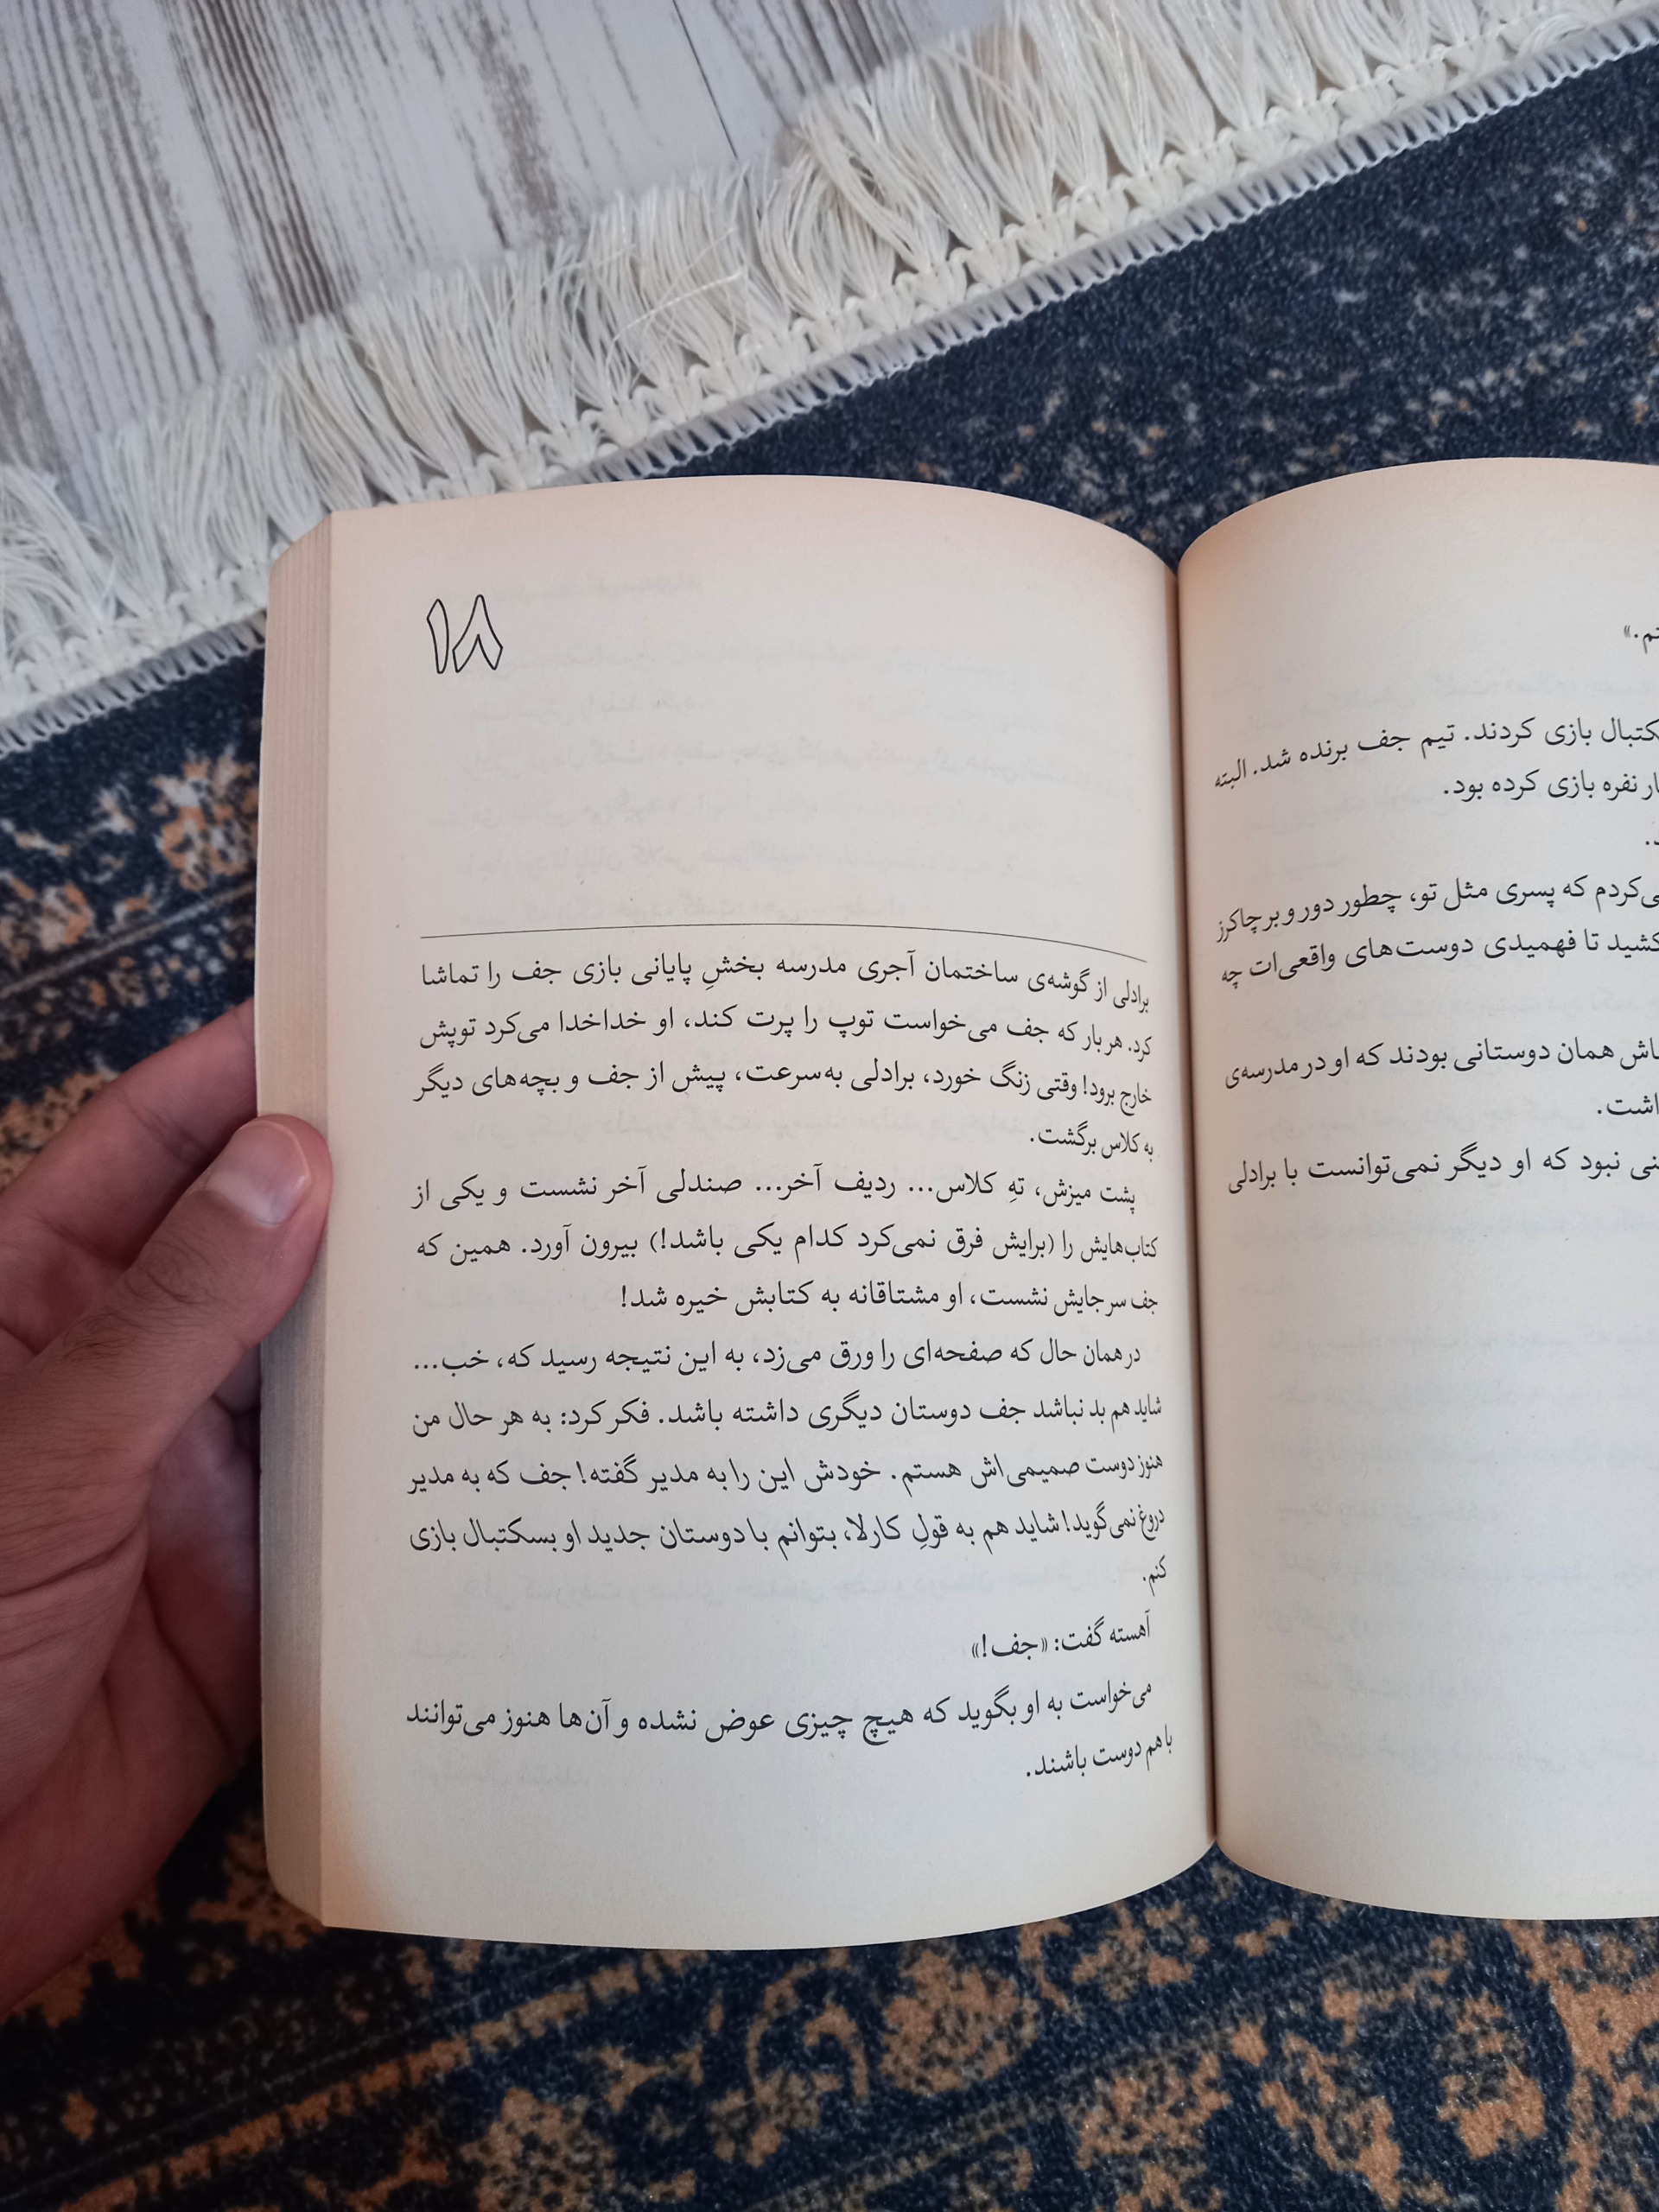 تم.»
کتبال بازی کردند. تیم جف برنده شد. البته
ار نفره بازی کرده بود.
ی‌کردم که پسری مثل تو، چطور دور و بر چاکرز
کشید تا فهمیدی دوست‌های واقعی‌ات چه
اش همان دوستانی بودند که او در مدرسه‌ی
اشت.
نی نبود که او دیگر نمی‌توانست با برادلی
۱۸
برادلی از گوشه‌ی ساختمان آجری مدرسه بخشِ پایانی بازی جف را تماشا
کرد. هر بار که جف می‌خواست توپ را پرت کند، او خداخدا می‌کرد توپش
خارج برود! وقتی زنگ خورد، برادلی به‌سرعت، پیش از جف و بچه‌های دیگر
به کلاس برگشت.
پشت میزش، تهِ کلاس... ردیف آخر... صندلی آخر نشست و یکی از
کتاب‌هایش را (برایش فرق نمی‌کرد کدام یکی باشد!) بیرون آورد. همین که
جف سر جایش نشست، او مشتاقانه به کتابش خیره شد!
در همان حال که صفحه‌ای را ورق می‌زد، به این نتیجه رسید که، خب...
شاید هم بد نباشد جف دوستان دیگری داشته باشد. فکر کرد: به هر حال من
هنوز دوست صمیمی‌اش هستم. خودش این را به مدیر گفته! جف که به مدیر
دروغ نمی‌گوید! شاید هم به قولِ کارلا، بتوانم با دوستان جدید او بسکتبال بازی
کنم.
آهسته گفت: «جف!»
می‌خواست به او بگوید که هیچ چیزی عوض نشده و آن‌ها هنوز می‌توانند
با هم دوست باشند.